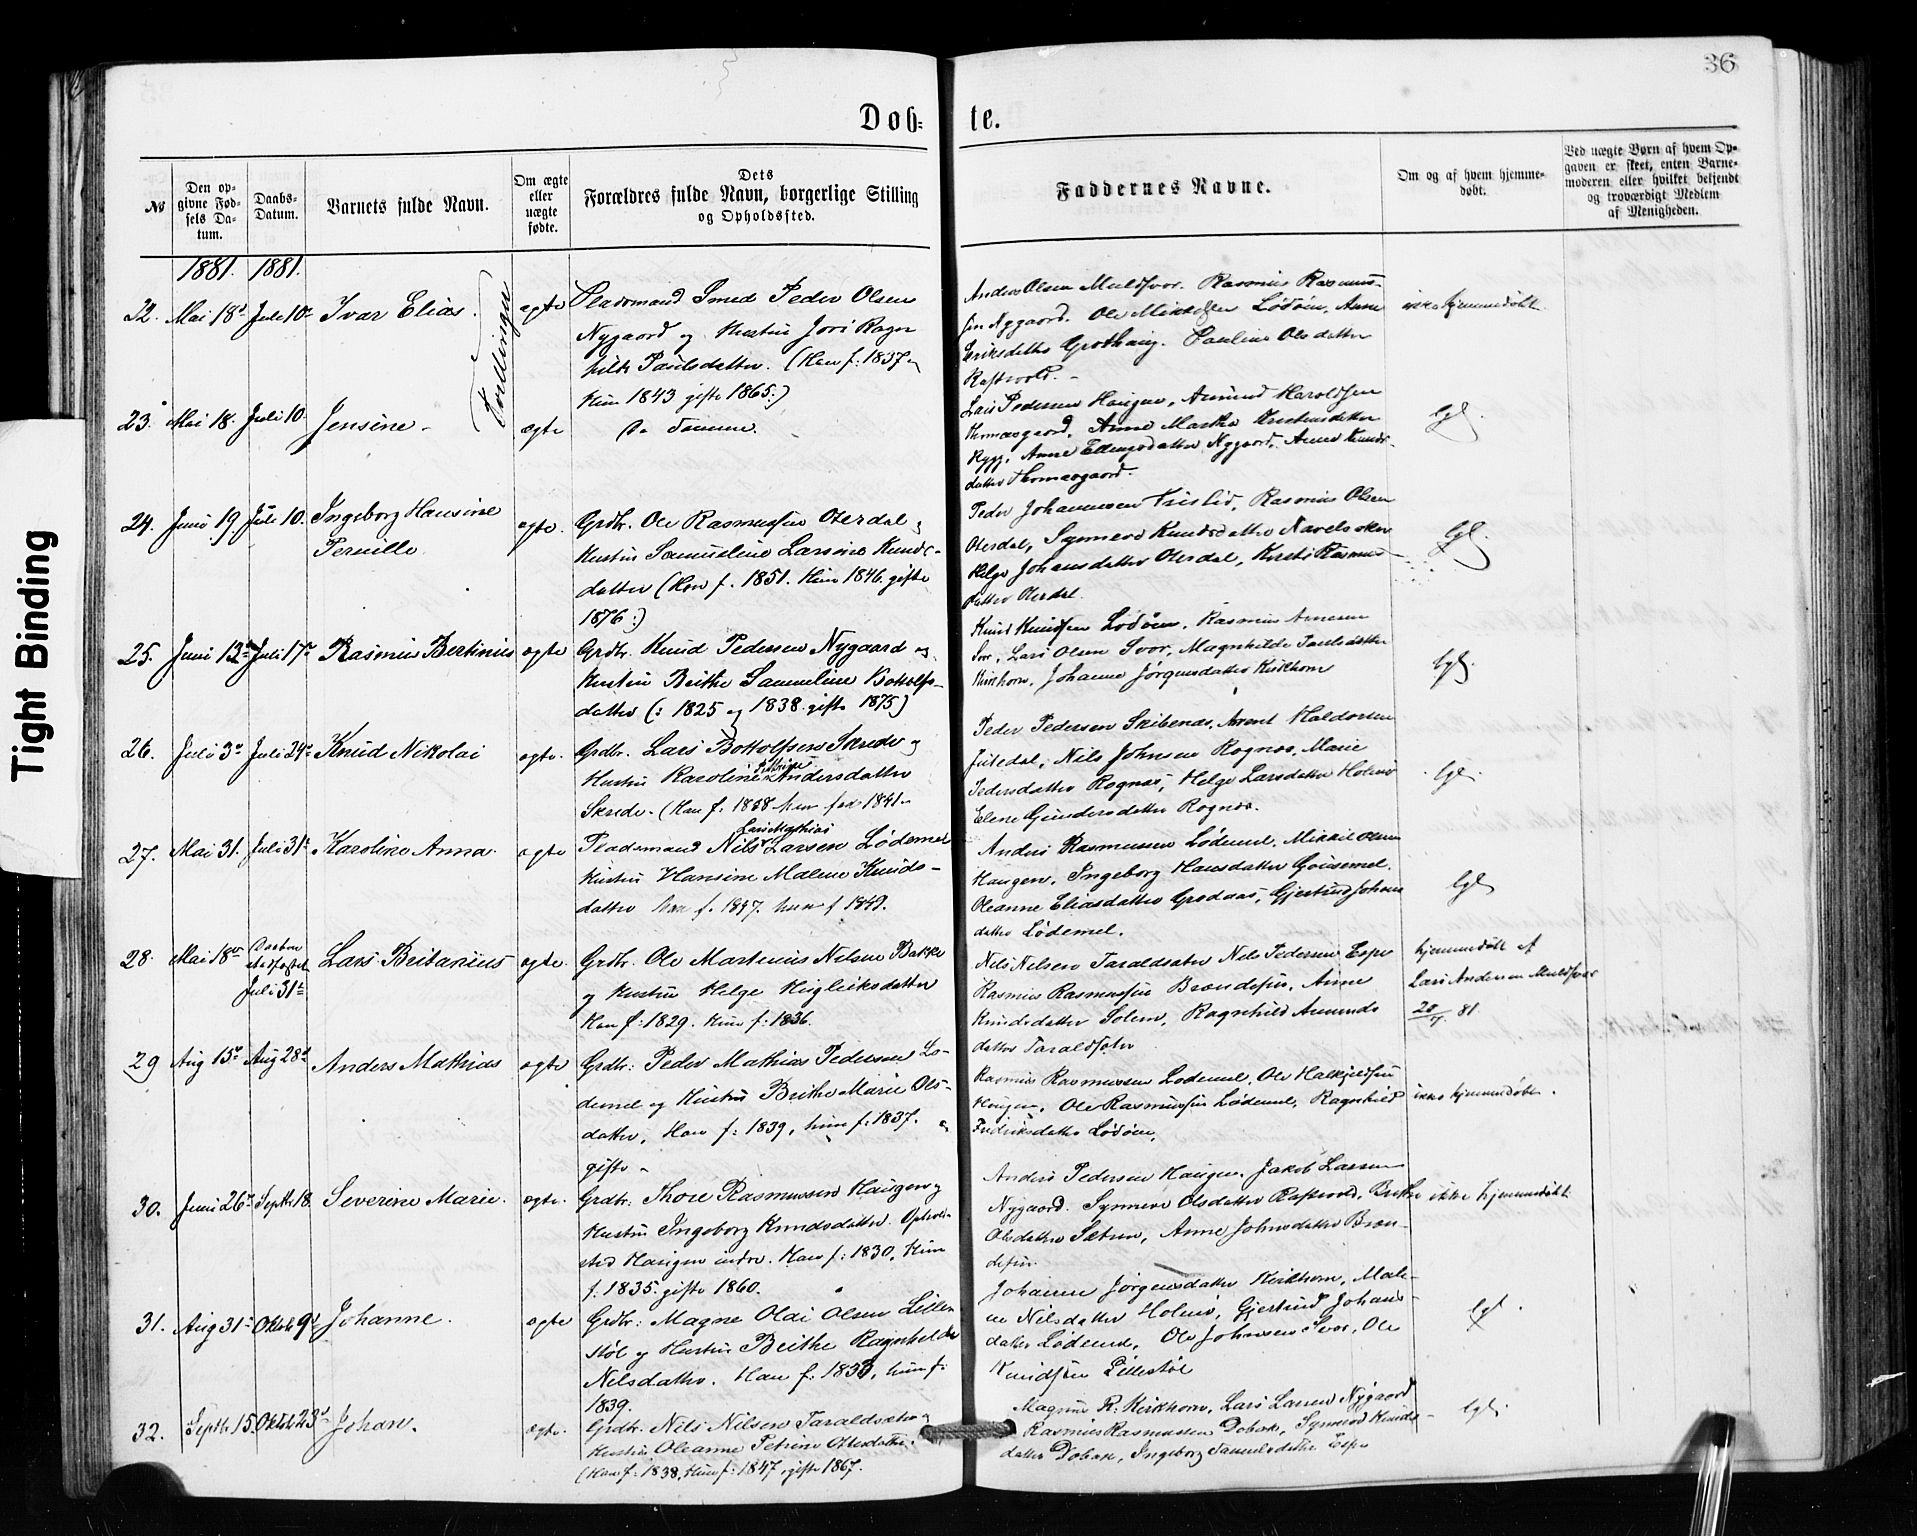 36
Døb=
te.
№
Den op-
givne Fød-
sels Da-
tum.
Daabs-
Datum.
Barnets fulde Navn.
Om ægte
eller
uægte
fødte.
Dets
Forældres fulde Navn, borgerlige Stilling
og Opholdssted.
Faddernes Navne.
Om og af hvem hjemme-
døbt.
Ved uægte Børn af hvem Op-
gaven er skeet, enten Barne-
moderen eller hvilket bekjendt
og troværdigt Medlem
af Menigheden.
1881. 1881.
Tvillinger
Mai 18 Juli 10 Ivar Elias. ægte Pladsmand Smed Peder Olsen
Nygaard og Hustru Jori Ragn
hilde Paulsdatter. (Han f. 1837 og
Hun 1843 gifte 1865:)
Anders Olsen Muldsvor. Rasmus Rasmus-
sen Nygaard. Ole Mikkelsen Lødøen, Anne
Eriksdatter Grothaug. Pauline Olsdatter
ikke hjemmedøbt
23. Mai 18. Juli 10. Jensine ægte De Samme.
Lars Pedersen Haugen, Amund Haroldsen
Thomasgaard, Anne Marthe Kristensdatter
Rygg, Anne Ellingsdatter Nygaard, Anne Knuds-
datter Thomasgaard.
lgl.
24. Juni 19. Juli 10. Ingeborg Hansine
Pernille ægte. Grdbr. Ole Rasmussen Oterdal og
Hustru Samueline Larsine Knuds-
datter (Han f. 1851. Hun 1846. gifte
1876:)
Peder Johannessen Fristid, Rasmus Olsen
Oterdal, Synneve Knudsdatter Navelsaker
Helge Johansdatter Oterdal, Kirsti Rasmus
datter Oterdal.
lgl.
25. Juni 13 Juli 17 Rasmus Bertinius ægte Grdbr. Knud Pedersen Nygaard og
Hustru Brithe Samueline Bottolfs-
datter (: 1825 og 1838 gifte 1875)
Knud Knudsen Lødøen, Rasmus Arnesen
Svor, Lars Olsen Svor, Magnhilde Paulsdatter
Kirkhorn, Johanne Jørgensdatter Kirkhorn
lgl.
26. Juli 3 Juli 24 Knud Nikolai ægte. Grdbr. Lars Bottolfsen Skrede og
Hustru Karoline Andersdatter
Skrede. (Han f. 1838 hun fød 1841
Peder Pedersen Skibenes, Arent Haldorsen
Nils Johnsen Rognes, Marie
Pedersdatter Rognes, Helge Larsdatter Holmø
Elene Gundersdatter Rognes.
lgl.
27. Mai 31. Juli 31 Karoline Anna. ægte Lars Mathias
Pladsmand Nils Larsen Lødemel
Hustru Hansine Malene Knuds-
datter Han f. 1847. hun f 1849.
Anders Rasmussen Lødemel, Mikkel Olsen
Haugen, Ingeborg Hansdatter Gausemel.
Oleanne Eliasdatter Grodaas, Gjertrud Johans
datter Lødemel.
lgl
28. Mai 18 Daaben
stadfæstet
Juli 31 Lars Britanius ægte. Grdbr. Ole Martinus Nilsen Bakke
og Hustru Helge Hugleiksdatter
Han f: 1829. Hun f: 1836.
Nils Nilsen Taraldsæter Nils Pedersen Espe
Rasmus Rasmussen Brændeseter, Anne
Knudsdatter Solem, Ragnhild Amunds
datter Taraldsæter
hjemmedøbt af
Lars Andersen Muldsvor
20/7 81
29 Aug 15 Aug 28 Anders Mathias ægte Grdbr: Peder Mathias Pedersen Lø-
demel og Hustru Brithe Marie Ols-
datter, Han f: 1839, hun f: 1837.
gifte
Rasmus Rasmussen Lødemel, Ole Halkjeldsen
Haugen, Ole Rasmussen Lødemel, Ragnhild
Fredriksdatter Lødøen,
ikke hjemmedøbt.
30. Juni 26 Septbr 18. Severine Marie. ægte. Grdbr: Thore Rasmussen Haugen og
Hustru Ingeborg Knudsdatter. Opholds-
sted Haugen indre. Han f: 1830, Hun
f. 1835. gifte 1860.
Anders Pedersen Haugen, Jakob Larsen
Nygaard. Synneve Olsdatter Raftevold, Brithe
Olsdatter Sætren, Anne Johnsdatter Bræn-
ikke hjemmedøbt
31. Aug 31 Oktob 9 Johanne. ægte Grdbr: Magne Olai Olsen Lille
støl og Hustru Brithe Ragnhilde
Nilsdatter. Han f. 1833, hun f:
1839.
Johanne Jørgensdatter Kirkhorn, Male-
ne Nilsdatter Holmø, Gjertrud Johans-
datter Lødemel, Ole Johnsen Svor, Ole
Knudsen Lillestøl
lgl.
32. Septbr 15. Oktob 23 Johan. ægte. Grdbr: Nils Nilsen Taraldsæter og
Hustru Oleanne Petrine Ottesdatter.
(Han f: 1838, Hun f: 1847, gifte 1867.
Magnus R. Kirkhorn, Lars Larsen Nygaard
Rasmus Rasmussen Dobak, Synneve Knuds-
datter Dobak, Ingeborg Samuelsdatter Espe
lgl.
Tight Binding